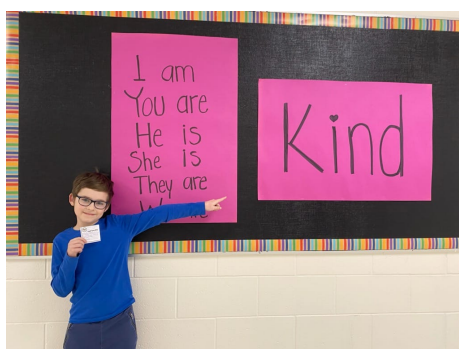 I am
You are
He is
She is
They are
Kind